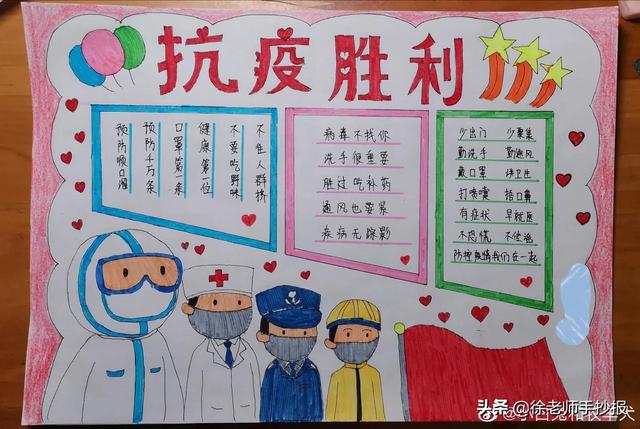 抗疫胜利
预防顺口溜
预防千万条
口罩第一条
健康第一位
不要吃野味
不往人群挤
病毒不找你
洗手很重要
胜过吃补药
通风也要紧
疾病无踪影
少出门 少聚集
勤洗手 勤通风
戴口罩 讲卫生
打喷嚏 捂口鼻
有症状 早就医
不恐慌 不传谣
防控疫情我们在一起
头条 @徐老师手抄报